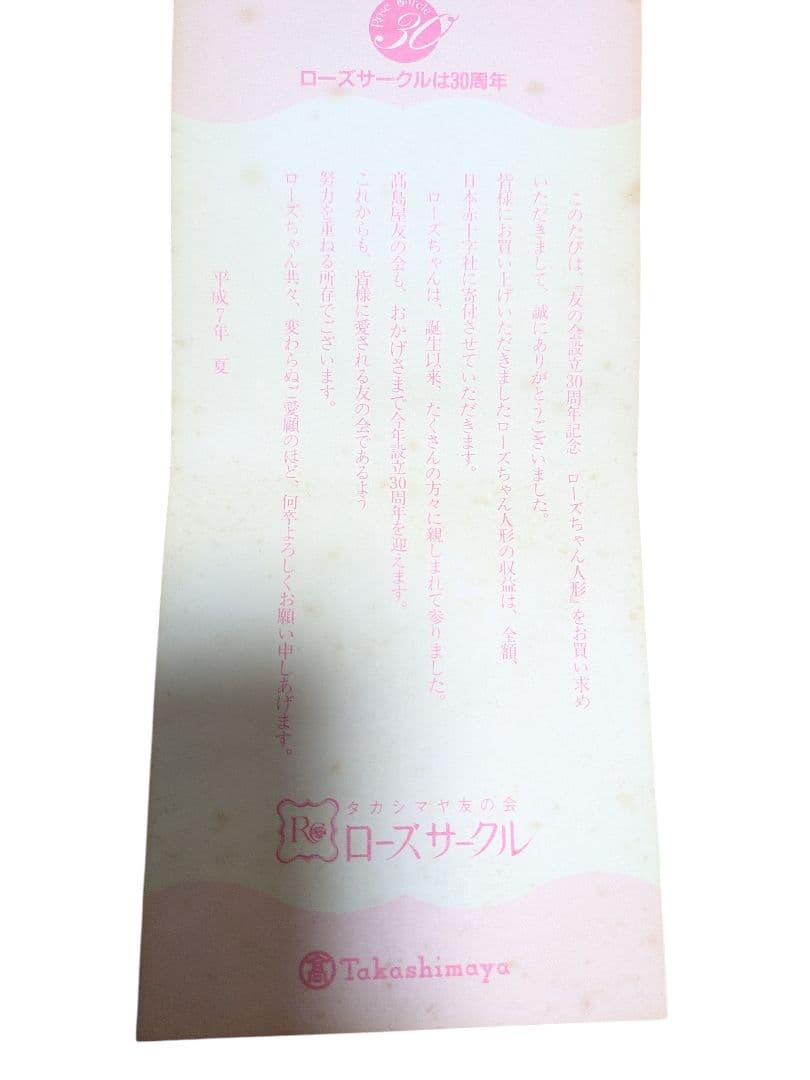 Rose Circle
30
ローズサークルは30周年
このたびは、『友の会設立30周年記念　ローズちゃん人形』をお買い求め
いただきまして、誠にありがとうございました。
皆様にお買い上げいただきましたローズちゃん人形の収益は、全額、
日本赤十字社に寄付させていただきます。
ローズちゃんは、誕生以来、たくさんの方々に親しまれて参りました。
髙島屋友の会も、おかげさまで今年設立30周年を迎えます。
これからも、皆様に愛される友の会であるよう
努力を重ねる所存でございます。
ローズちゃん共々、変わらぬご愛顧のほど、何卒よろしくお願い申しあげます。
平成7年　夏
タカシマヤ友の会
RC
ローズサークル
髙 Takashimaya